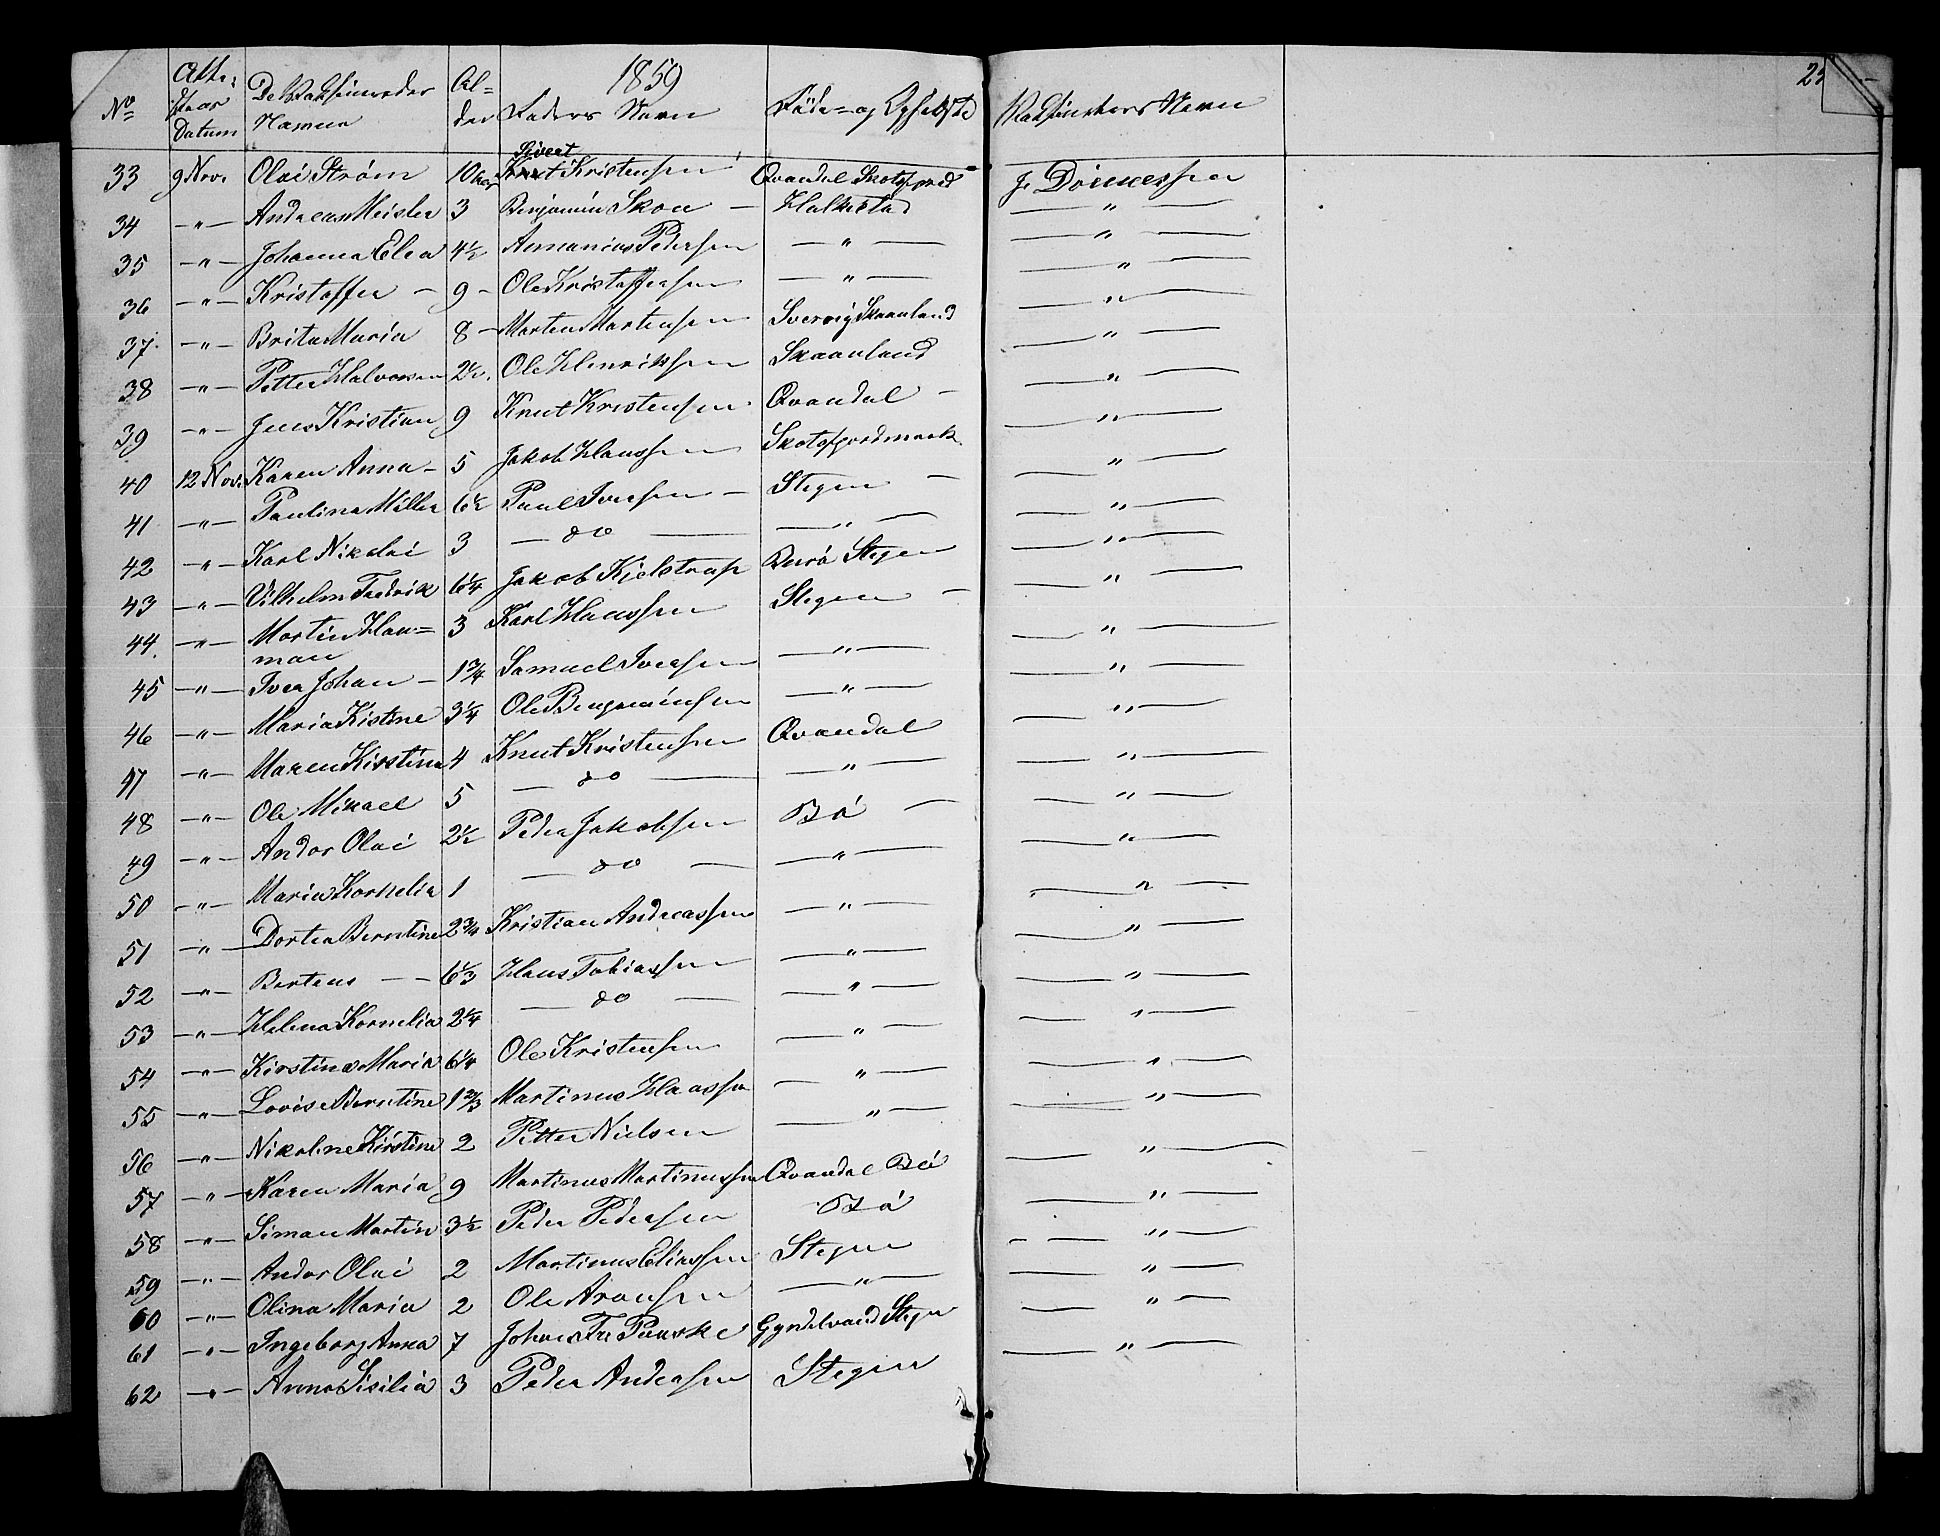 1859
23
No
Atte-
Datum
De Vaksineredes
Al-
der
Faders Navn
Føde- og Opholdste
Vaksinators Navn
33 9 Nov. Olai Strøm 10 Sivert Kristensen Qvandal Skotsfjord J. Dønnessen
34 -"- Andreas Meisler 3 Benjamin Skou — Halkestad —"—
35 -"- Johanna Elea 4½ Annanias Pedersen —"— —"—
36 -"- Kristoffer — 9 – Ole Kristoffersen —"— —"—
37 -"- Brita Maria 8 – Morten Mortensen Skaanland —"—
38 -"- Petter Halvorsen 2½ Ole Henriksen Skaanland —"—
39 -"- Jens Kristian 9 Knut Kristensen Qvandal — —"—
40 12 Nov. Karen Anna – 5 Jakob Hanssen Skotsfjordmark —"—
41 -"- Paulina Möller 6½ Paul Iversen – Stegen — —"—
42 -"- Karl Nikolai 3 — do — —"— —"—
43 -"- Vilhelm Fredrik 6¼ Jakob Kjelstrup Stegen —"—
44. -"- Martin Han= 3 Karl Hanssen Stegen — —"—
man
45 -"- Iver Johan – 1¾ Samuel Iversen —"— —"—
46 -"- Maria Kistine 3¼ Ole Benjaminsen —"— —"—
47 -"- Maren Kirstina 4 Knut Kristensen Qvandal —"—
48 -"- Ole Mikael 5 — do — —"— —"—
49 -"- Andor Olai 2½ Peder Jakobsen Bö — —"—
50 -"- Maria Kornelia 1 — do — —"— —"—
51 -"- Dortea Berntine 2¾ Kristian Andreassen —"— —"—
52 -"- Berteus — 6⅓ Hans Tobiassen —"— —"—
53 -"- Helena Kornelia 2¼ — do — —"— —"—
54 -"- Kirstina Maria 6¼ Ole Kristensen —"— —"—
55 -"- Lovise Berntine 1⅔ Martinus Haassen —"— —"—
56 -"- Nikoline Kirstine 2 Petter Nielsen —"— —"—
57 -"- Karen Maria 9 Martinus Martinussen Qvandal Bö —"—
58 -"- Siman Martin 3½ Peder Pedersen Bö —"—
59 -"- Andor Olai 2 Martinus Eliassen Stegen —"—
60 -"- Olina Maria 2 Ole Aronsen —"— —"—
61 -"- Ingeborg Anna 7 Johan Fr Pauske Stegen —"—
62 -"- Anna Sisilia 3 Peder Andersen Stegen —"—